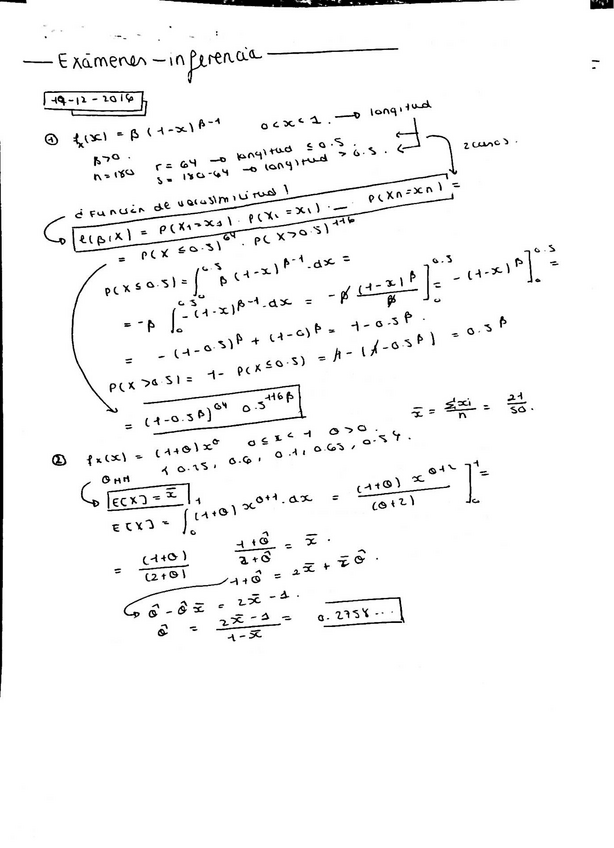 Exámenes - inferencia
19-12-2016
① fx(x) = β (1-x)^(β-1)   0<x<1. → longitud
β>0.
n=180   r = 64 → longitud ≤ 0.5.
s = 180-64 → longitud > 0.5.   2 casos.
¿Función de verosimilitud?
l(β|X) = P(X1=x1) · P(X1=x1) · ... P(Xn=xn) =
= P(X ≤ 0.5)^64 · P(X>0.5)^116
P(X≤0.5) = ∫_0^0.5 β (1-x)^(β-1) · dx =
= -β ∫_0^0.5 -(1-x)^(β-1) · dx = -β (1-x)^β / β ]_0^0.5 = -(1-x)^β ]_0^0.5 =
= -(1-0.5)^β + (1-0)^β = 1-0.5^β.
P(X>0.5) = 1- P(X≤0.5) = 1-(1-0.5^β) = 0.5^β
= (1-0.5^β)^64 0.5^(116β)
x̄ = Σxi / n = 21 / 50.
② fx(x) = (1+θ) x^θ   0≤x<1   θ>0.
0.6, 0.1, 0.65, 0.54.
θ MM
E[X] = x̄
E[X] = ∫_0^1 (1+θ) x^(θ+1) · dx = (1+θ) x^(θ+2) / (θ+2) ]_0^1 =
= (1+θ) / (2+θ)   1+θ̂ / 2+θ̂ = x̄.
1+θ̂ = 2x̄ + x̄θ̂.
θ̂ - θ̂x̄ = 2x̄ - 1.
θ̂ = 2x̄ - 1 / 1-x̄ = 0.2758...